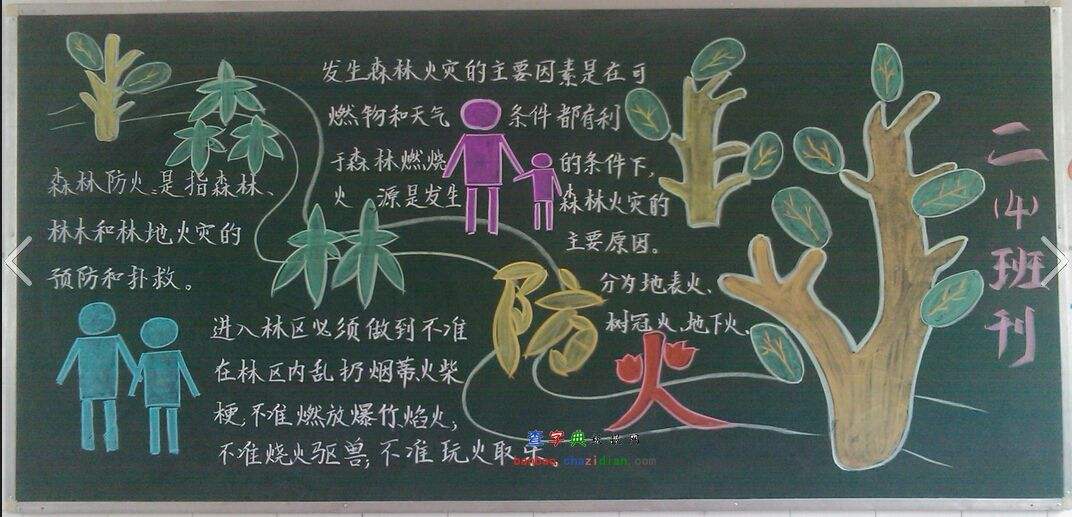 森林防火是指森林、
林木和林地火灾的
预防和扑救。
发生森林火灾的主要因素是在可
燃物和天气条件都有利
于森林燃烧的条件下,
火源是发生森林火灾的
主要原因。
分为地表火、
树冠火、地下火、
防火
进入林区必须做到不准
在林区内乱扔烟蒂火柴
梗,不准燃放爆竹焰火,
不准烧火驱兽,不准玩火取乐
二(4)班刊
查字典
chazidian.com